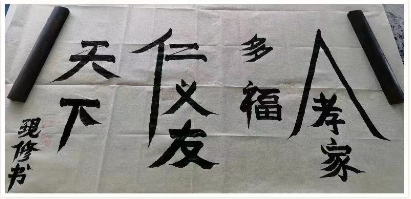 人孝家
多福
仁义友
天下
現修书